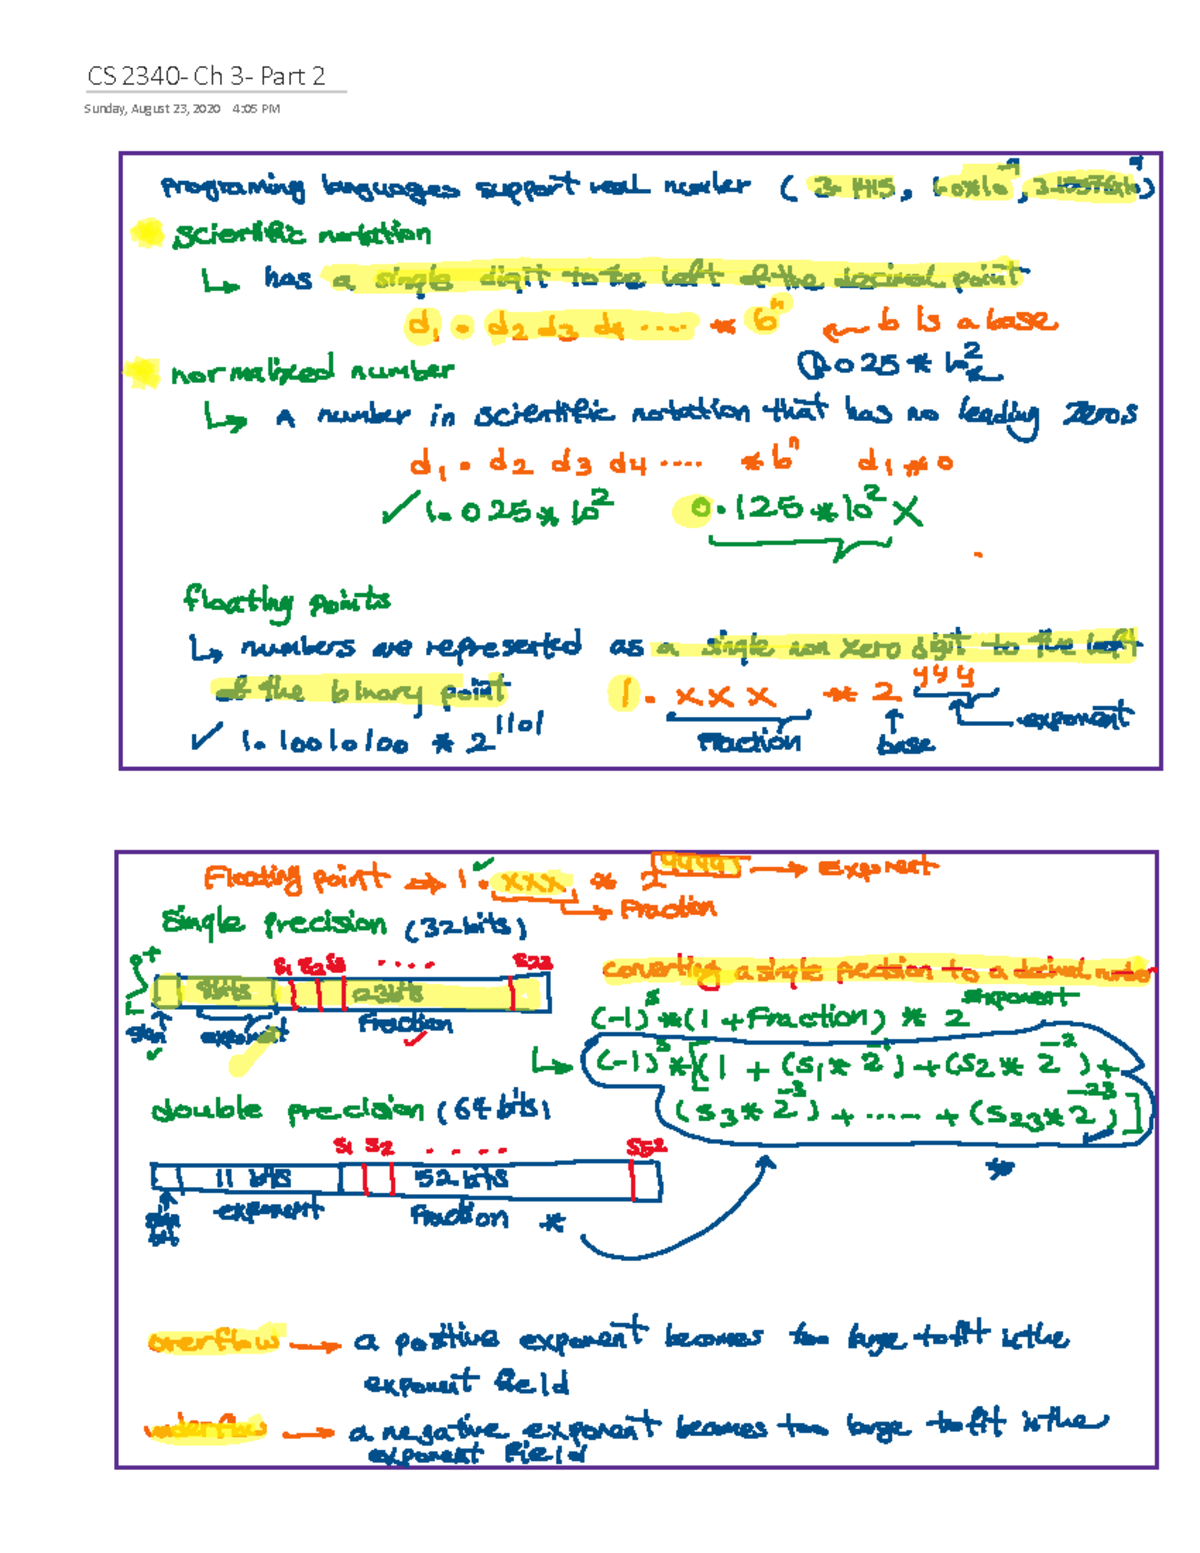 CS 2340- Ch 3- Part 2
Sunday, August 23, 2020 4:05 PM
programing languages support real number ( 3.1415, 1.0x10^-9,
scientific notation
↳ has a single digit to the left of the decimal point
d1 . d2 d3 d4 .... * b^n ← b is a base
1.025 * 10^2
normalized number
↳ A number in scientific notation that has no leading zeros
d1 . d2 d3 d4 .... * b^n d1 ≠ 0
✓ 1.025 * 10^2 0.125 * 10^2 X
floating points
↳ numbers are represented as a single non zero digit to the left
of the binary point 1. x x x * 2^yyy
Fraction base exponent
✓ 1.10010100 * 2^1101
Floating point ⇒ 1.xxx * 2^yyyy → Exponent
→ Fraction
Single precision (32 bits)
S1 S2 S3 .... S23
+
-
8bits 23bits
sign exponent Fraction
converting a single precision to a decimal number
(-1)^s * (1 + Fraction) * 2^exponent
↳ (-1)^s * [(1 + (S1 * 2^-1) + (S2 * 2^-2) +
(S3 * 2^-3) + ..... + (S23 * 2^-23)]
double precision (64 bits)
S1 S2 .... S52
11 bits 52 bits
sign bit exponent Fraction *
overflow → a positive exponent becomes too large to fit in the
exponent field
underflow → a negative exponent becomes too large to fit in the
exponent field